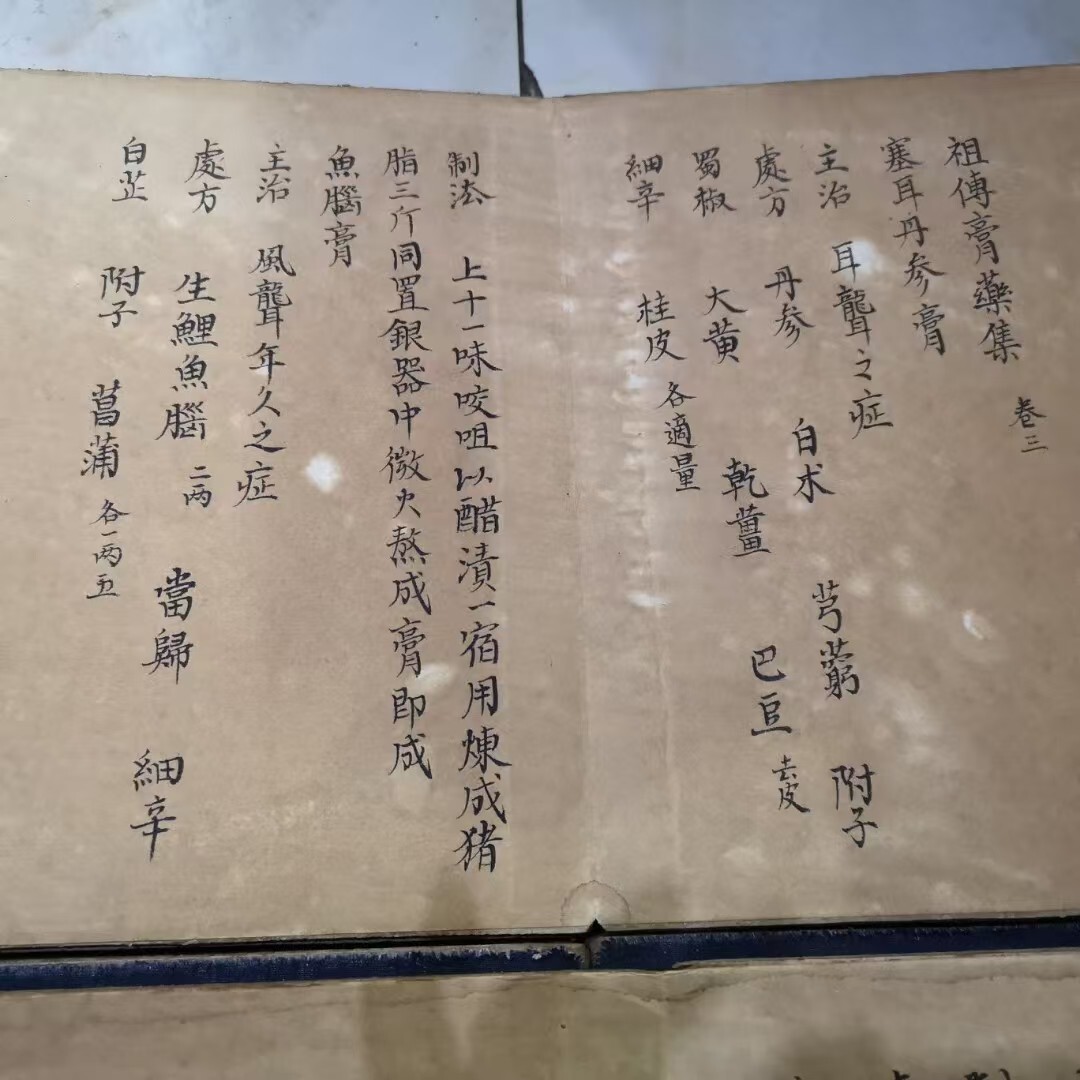 祖傳膏藥集 卷三
塞耳丹参膏
主治 耳聾之症
處方 丹参 白术 芎藭 附子
蜀椒 大黄 乾薑 巴豆 去皮
細辛 桂皮 各適量
制法 上十一味咬咀以醋漬一宿用煉成猪
脂三斤同置銀器中微火熬成膏即成
魚腦膏
主治 風聾年久之症
處方 生鯉魚腦 二两 當歸 細辛
白芷 附子 菖蒲 各一两五